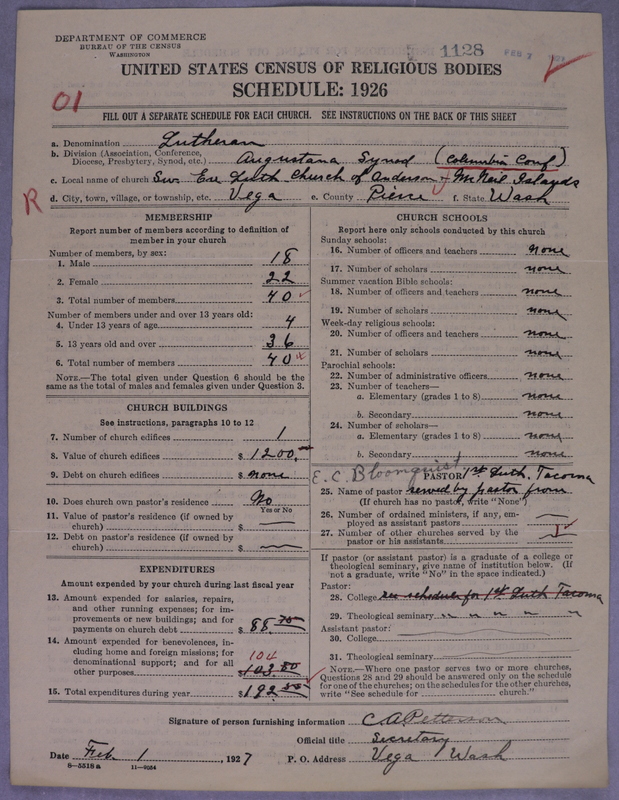 DEPARTMENT OF COMMERCE
BUREAU OF THE CENSUS
WASHINGTON
1128
FEB 7
UNITED STATES CENSUS OF RELIGIOUS BODIES
SCHEDULE: 1926
01
FILL OUT A SEPARATE SCHEDULE FOR EACH CHURCH. SEE INSTRUCTIONS ON THE BACK OF THIS SHEET
a. Denomination Lutheran
b. Division (Association, Conference, Diocese, Presbytery, Synod, etc.) Augustana Synod (Columbia Conf)
c. Local name of church Sw. Ev. Luth Church of Anderson + McNeil Islands
R
d. City, town, village, or township, etc. Vega e. County Pierce f. State Wash
MEMBERSHIP
Report number of members according to definition of member in your church
Number of members, by sex:
1. Male 18
2. Female 22
3. Total number of members 40
Number of members under and over 13 years old:
4. Under 13 years of age 4
5. 13 years old and over 36
6. Total number of members 40
NOTE.—The total given under Question 6 should be the same as the total of males and females given under Question 3.
CHURCH BUILDINGS
See instructions, paragraphs 10 to 12
7. Number of church edifices 1
8. Value of church edifices $ 1200.
9. Debt on church edifices $ none
10. Does church own pastor's residence No
Yes or No
11. Value of pastor's residence (if owned by church) $
12. Debt on pastor's residence (if owned by church) $
EXPENDITURES
Amount expended by your church during last fiscal year
13. Amount expended for salaries, repairs, and other running expenses; for improvements or new buildings; and for payments on church debt $ 88.75
14. Amount expended for benevolences, including home and foreign missions; for denominational support; and for all other purposes 104 103.80
15. Total expenditures during year $ 192.55
CHURCH SCHOOLS
Report here only schools conducted by this church
Sunday schools:
16. Number of officers and teachers none
17. Number of scholars none
Summer vacation Bible schools:
18. Number of officers and teachers none
19. Number of scholars none
Week-day religious schools:
20. Number of officers and teachers none
21. Number of scholars none
Parochial schools:
22. Number of administrative officers none
23. Number of teachers—
a. Elementary (grades 1 to 8) none
b. Secondary none
24. Number of scholars—
a. Elementary (grades 1 to 8) none
b. Secondary none
E. C. Bloomquist
PASTOR 1st Luth. Tacoma
25. Name of pastor served by pastor from
(If church has no pastor, write "None")
26. Number of ordained ministers, if any, employed as assistant pastors
27. Number of other churches served by the pastor or his assistants 1
If pastor (or assistant pastor) is a graduate of a college or theological seminary, give name of institution below. (If not a graduate, write "No" in the space indicated.)
Pastor:
28. College see schedule for 1st Luth Tacoma
29. Theological seminary " " " " "
Assistant pastor:
30. College
31. Theological seminary
NOTE.—Where one pastor serves two or more churches, Questions 28 and 29 should be answered only on the schedule for one of the churches; on the schedules for the other churches, write "See schedule for ............ church."
Signature of person furnishing information C A Petterson
Official title Secretary
Date Feb. 1, 1927 P. O. Address Vega Wash
8—5518 a 11—9054